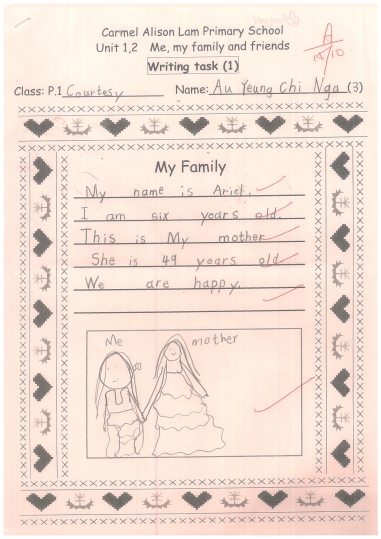 Carmel Alison Lam Primary School
Unit 1,2 Me, my family and friends
Writing task (1)
Class: P.1 Courtesy Name: Au Yeung Chi Nga (3)
A
My Family
My name is Ariel.
I am six years old.
This is My mother
She is 49 years old
We are happy.
Me mother